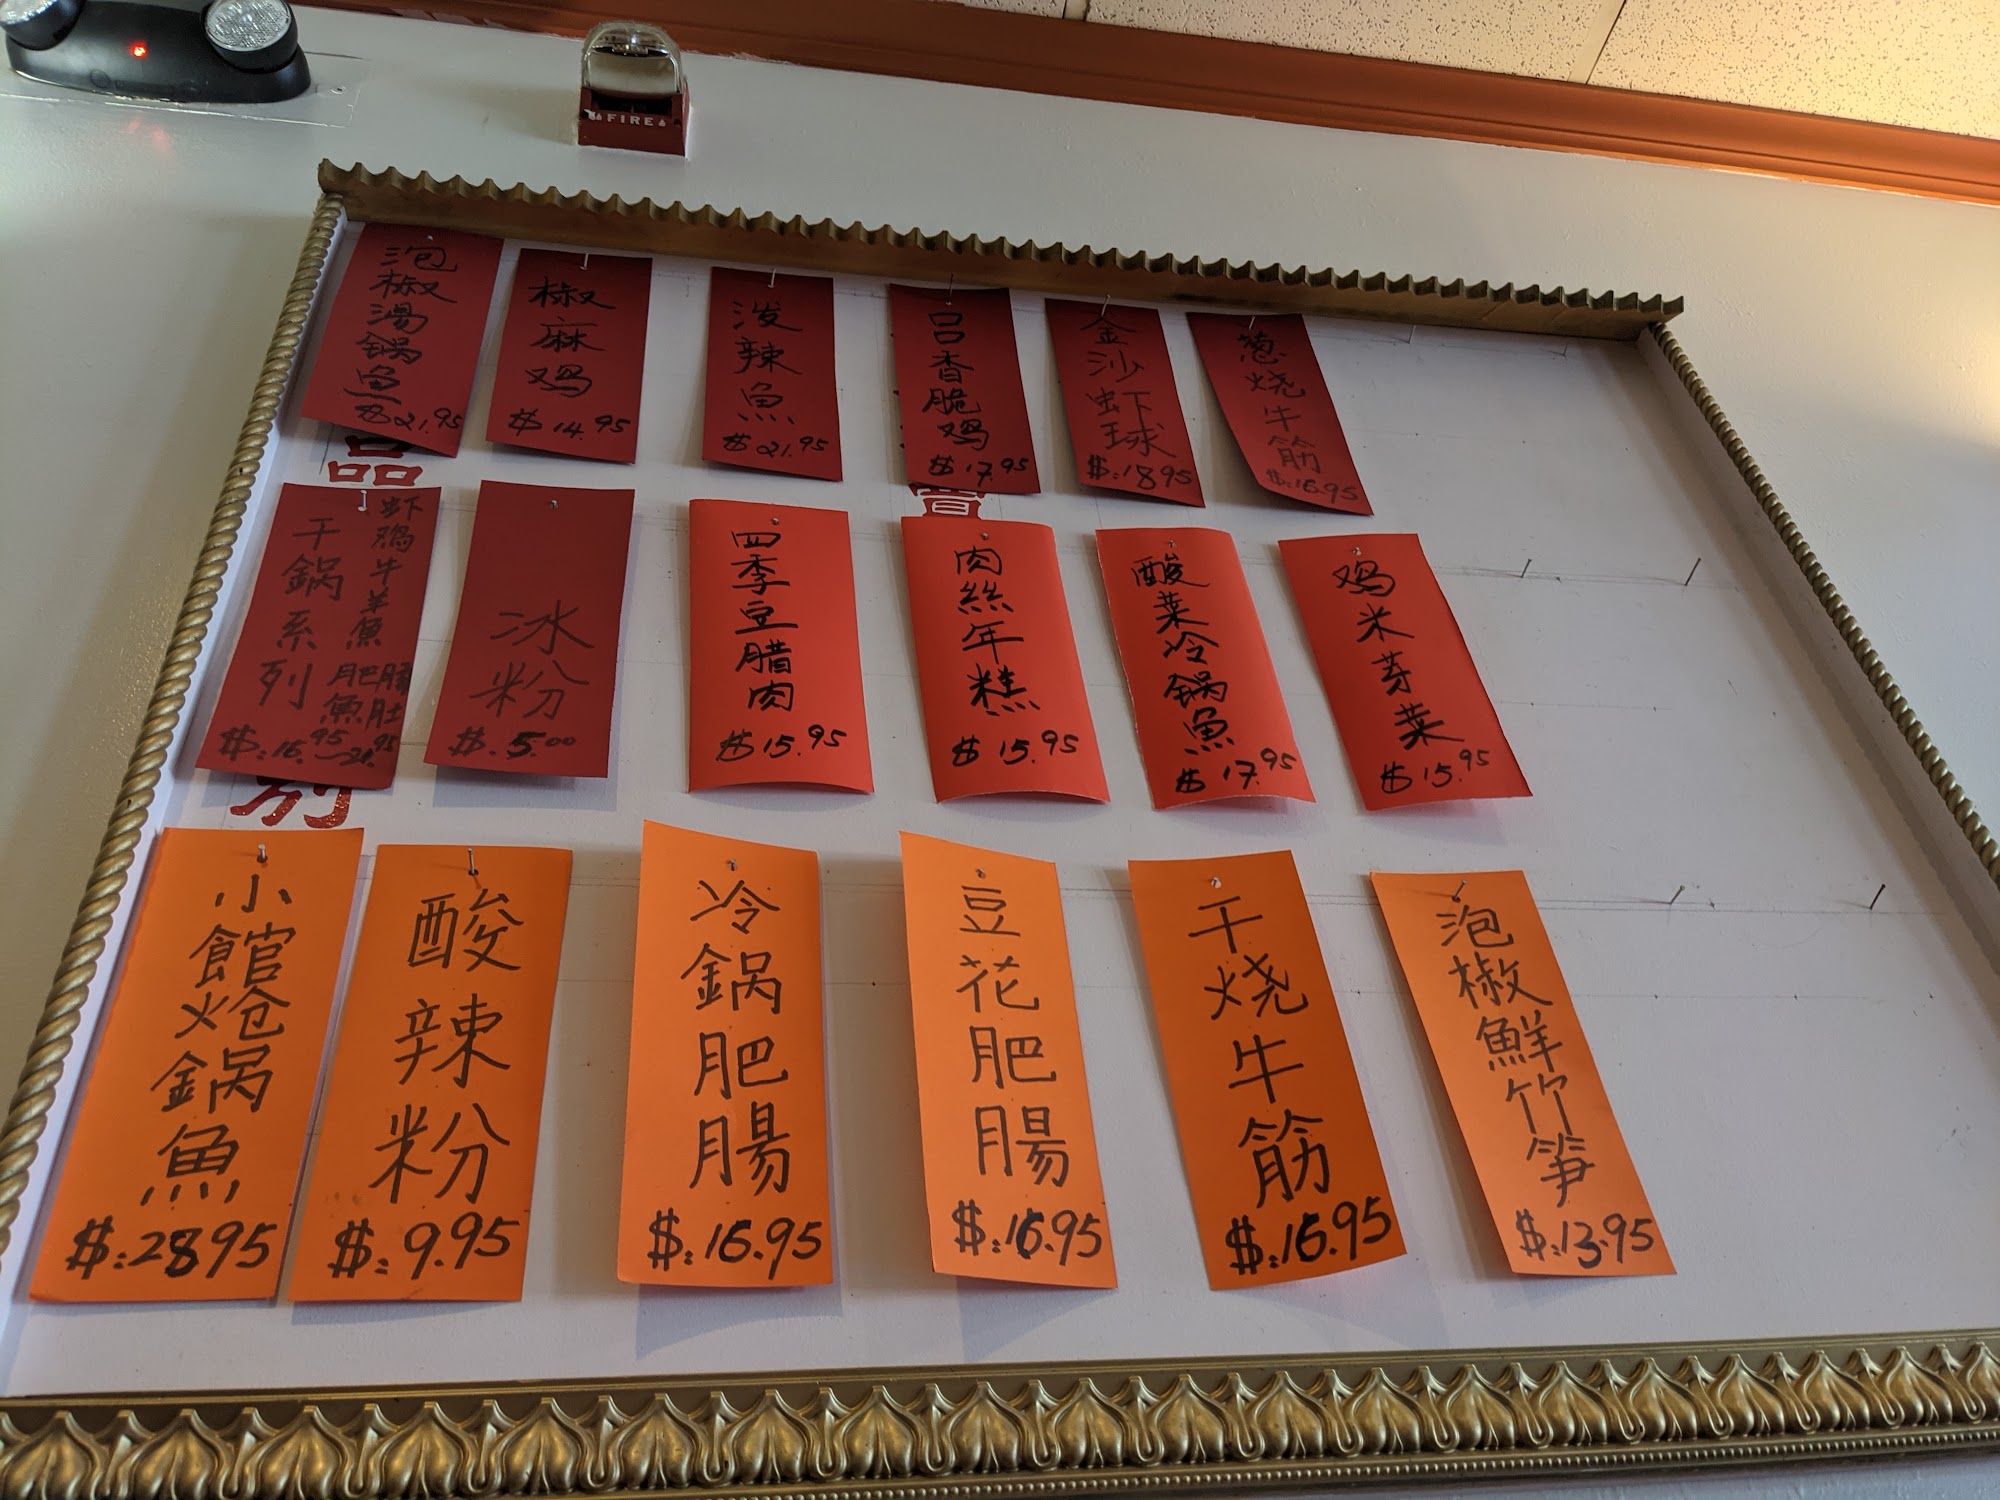 FIRE
泡椒湯锅魚
$21.95
椒麻鸡
$14.95
泼辣魚
$21.95
口口香脆鸡
$17.95
金沙虾球
$:18.95
葱烧牛筋
$:16.95
品
干鍋系列
虾鸡牛羊魚
肥腸
魚肚
$:16.95-21.95
冰粉
$.5.00
四季豆腊肉
$15.95
肉絲年糕
$15.95
酸菜冷锅魚
$17.95
鸡米芽菜
$15.95
别
小館炝鍋魚
$:28.95
酸辣粉
$:9.95
冷鍋肥腸
$:16.95
豆花肥腸
$:16.95
干烧牛筋
$:16.95
泡椒鮮竹笋
$:13.95